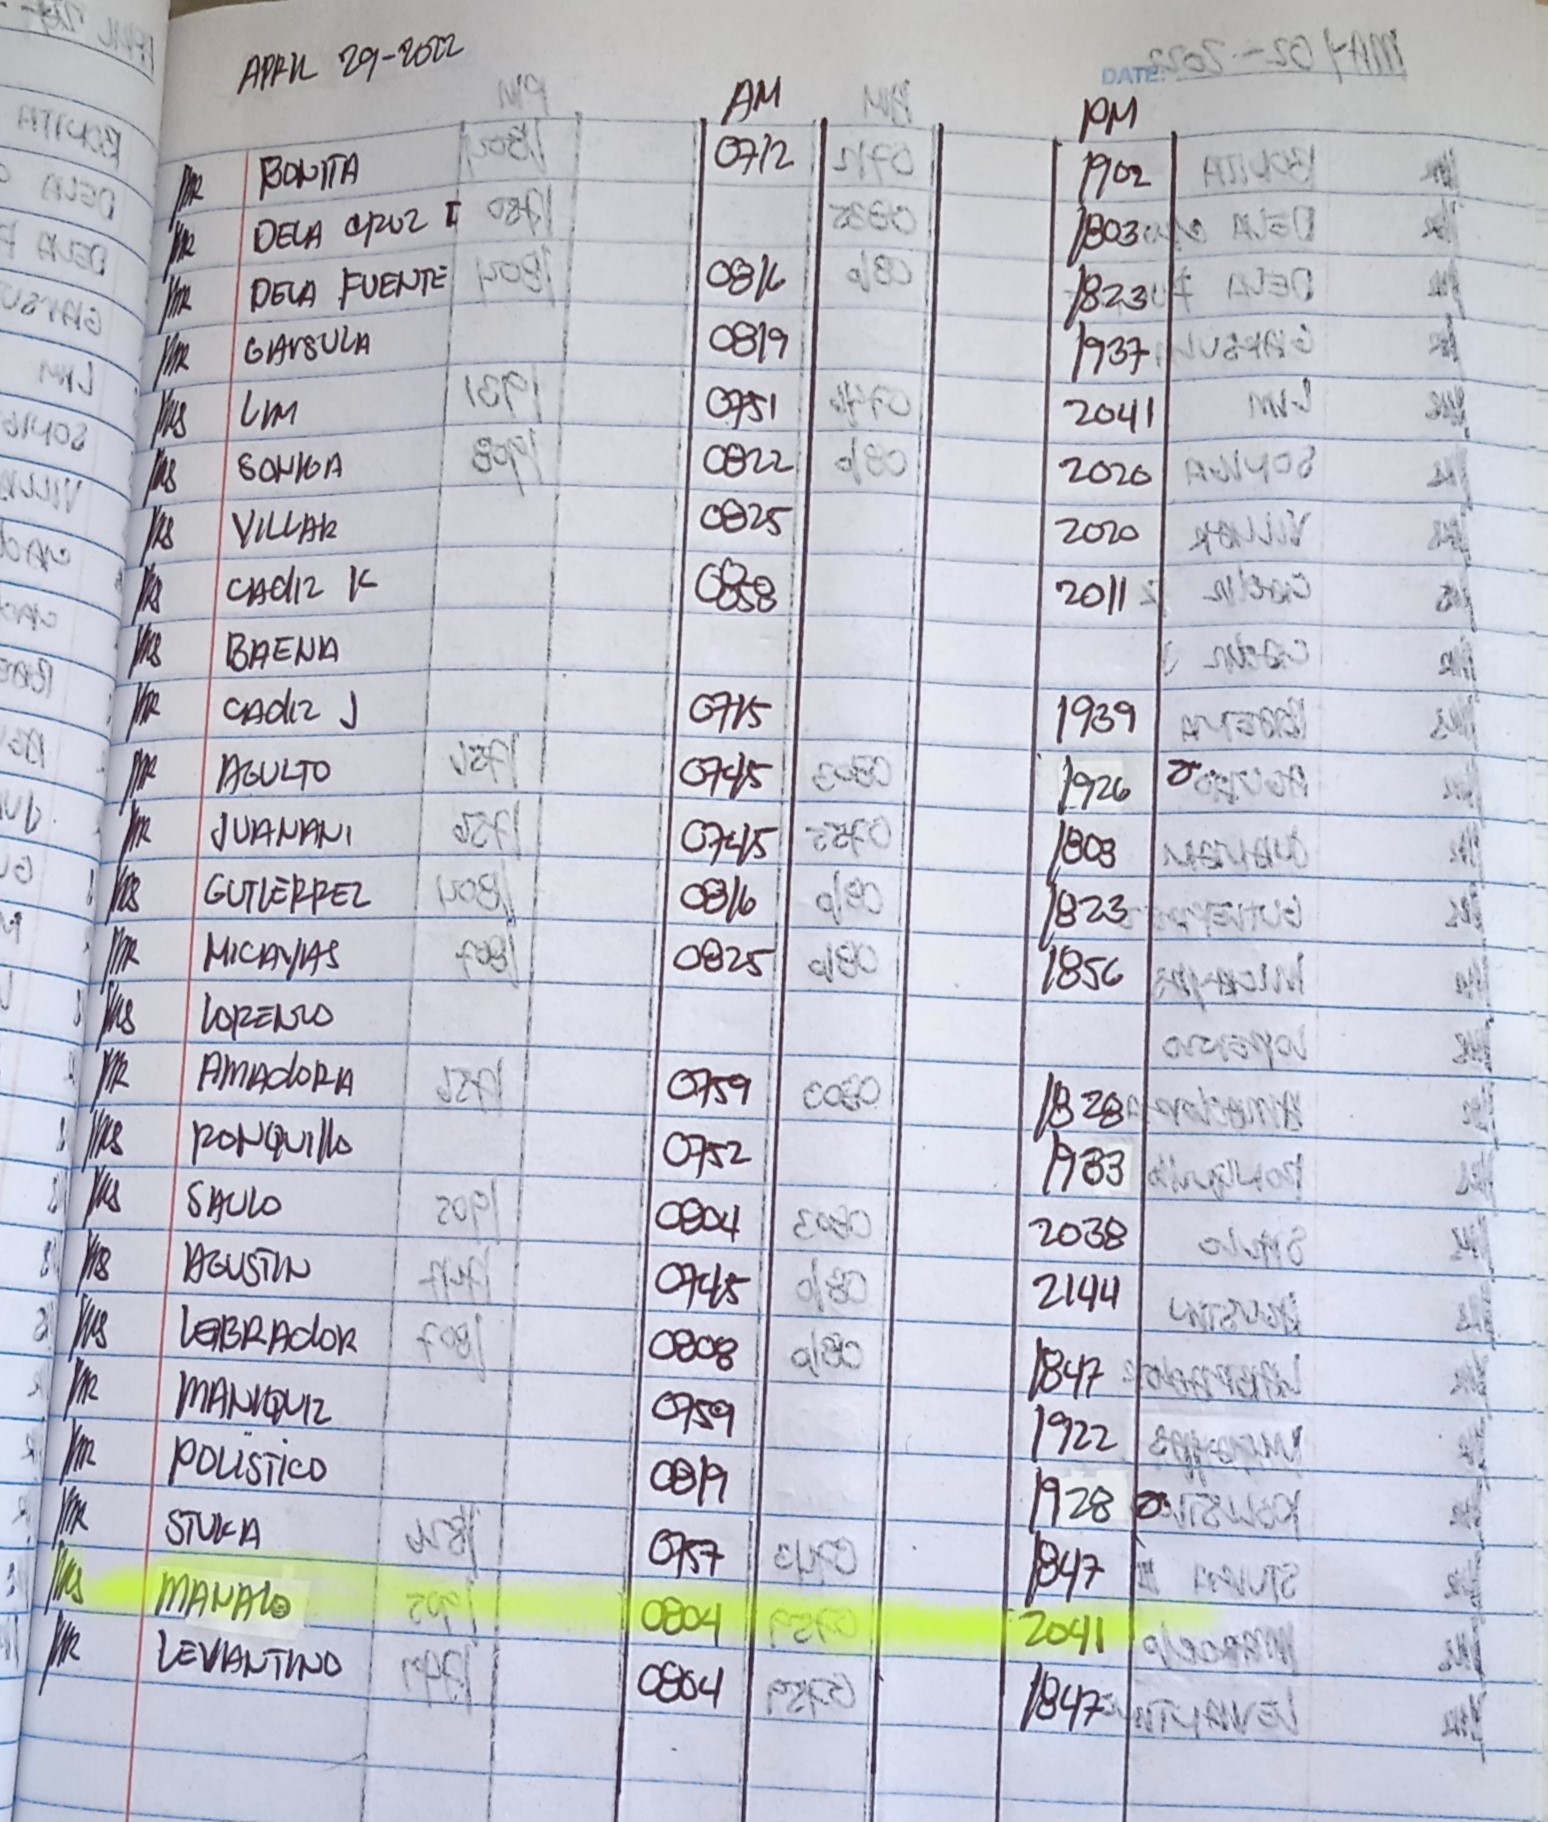 APRIL 29-2022
DATE:
AM PM
MR BONITA 0712 1902
MR DELA CRUZ I 1803
MR DELA FUENTE 0816 1823
MR GARSULA 0819 1937
MRS LIM 0751 2041
MRS SONIGA 0822 2020
MRS VILLAR 0825 2020
MRS CADIZ K 0858 2011
MRS BAENA
MR CADIZ J 0715 1939
MR AGULTO 0745 1926
MR JUANANI 0745 1803
MRS GUTIERREZ 0816 1823
MR MICAYAS 0825 1856
MRS LORENZO
MR AMADORA 0759 1828
MRS RONQUILLO 0752 1933
MRS SAULO 0804 2038
MRS AGUSTIN 0745 2144
MRS LABRADOR 0808 1847
MR MANIQUIZ 0759 1922
MR POLISTICO 0819 1928
MR STUKA 0757 1847
MRS MANALO 0804 2041
MR LEVIANTINO 0804 1847